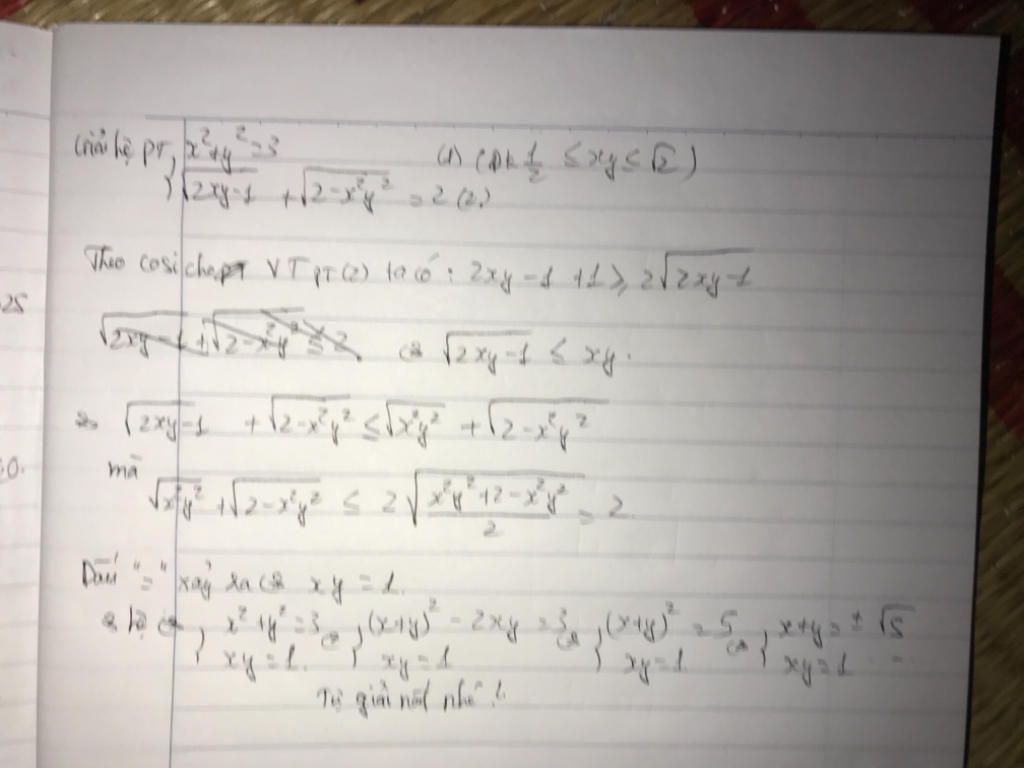 Giải hệ PT { x²+y²=3 (1) (Đk 1/2 ≤ xy ≤ √2)
√(2xy-1) + √(2-x²y²) = 2 (2)
Theo cosi cho VT PT(2) ta có: 2xy-1 +1 ≥ 2√(2xy-1)
25
√(2xy-1) + √(2-x²y²) ≤ 2 <=> √(2xy-1) ≤ xy.
=> √(2xy-1) + √(2-x²y²) ≤ √(x²y²) + √(2-x²y²)
mà
√(x²y²) + √(2-x²y²) ≤ 2√((x²y²+2-x²y²)/2) = 2
Dấu "=" xảy ra <=> xy = 1.
hệ <=> { x²+y²=3 <=> { (x+y)² - 2xy = 3 <=> { (x+y)² = 5 <=> { x+y = ± √5
xy=1. xy=1 xy=1. xy=1 ...
Tự giải nốt nhé!